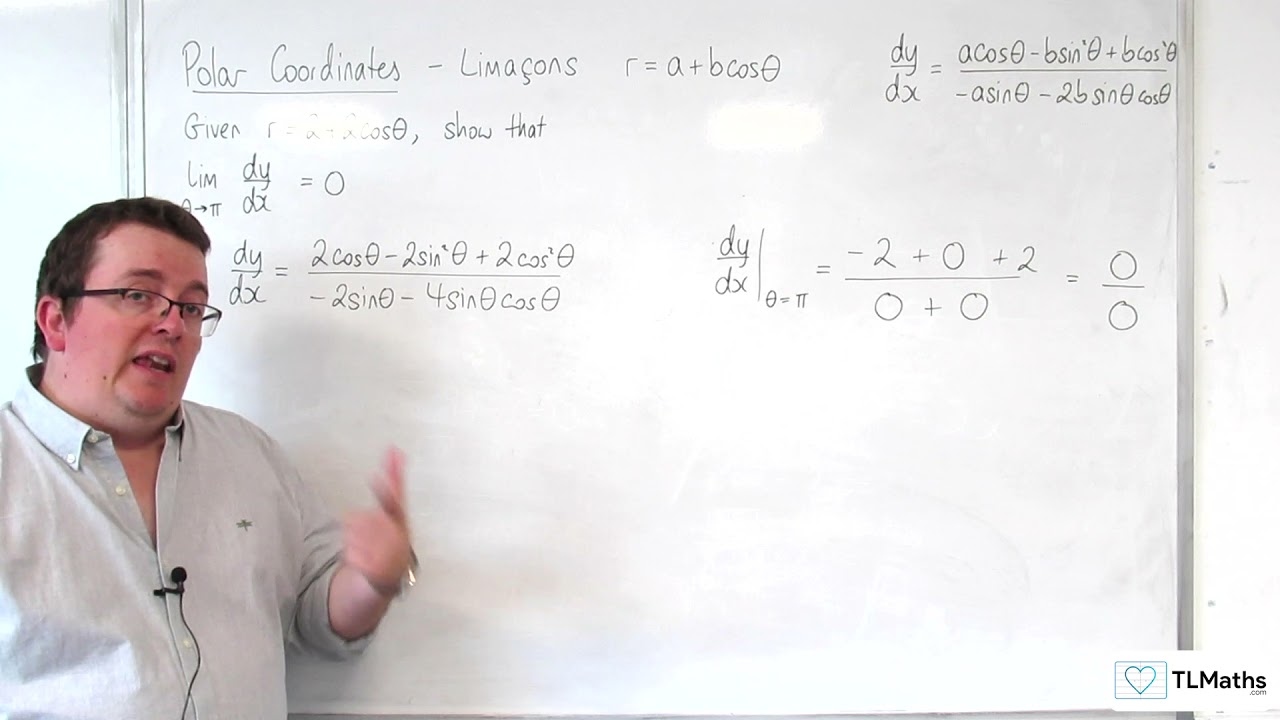 Polar Coordinates - Limaçons r = a + bcosθ
dy/dx = (acosθ - bsin²θ + bcos²θ)/(-asinθ - 2bsinθcosθ)
Given r = 2 + 2cosθ, show that
lim θ→π dy/dx = 0
dy/dx = (2cosθ - 2sin²θ + 2cos²θ)/(-2sinθ - 4sinθcosθ)
dy/dx|θ=π = (-2 + 0 + 2)/(0 + 0) = 0/0
TLMaths
.com